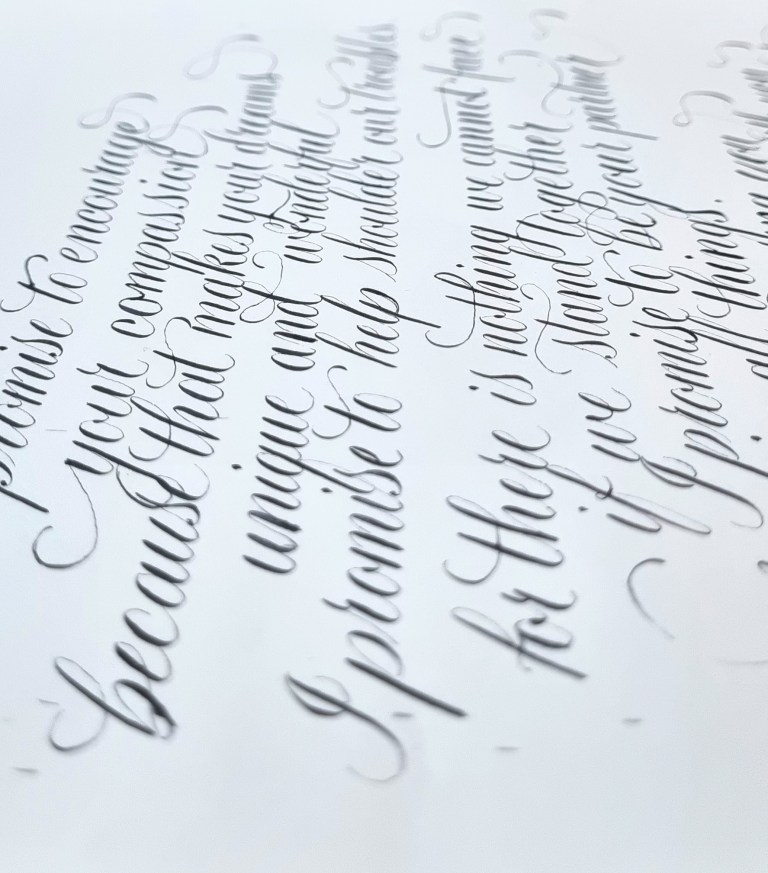 promise to encourage
your compassion
because that makes your dreams
unique and wonderful
I promise to help shoulder our troubles
for there is nothing we cannot face
if we stand together
I promise to be your partner
all things.